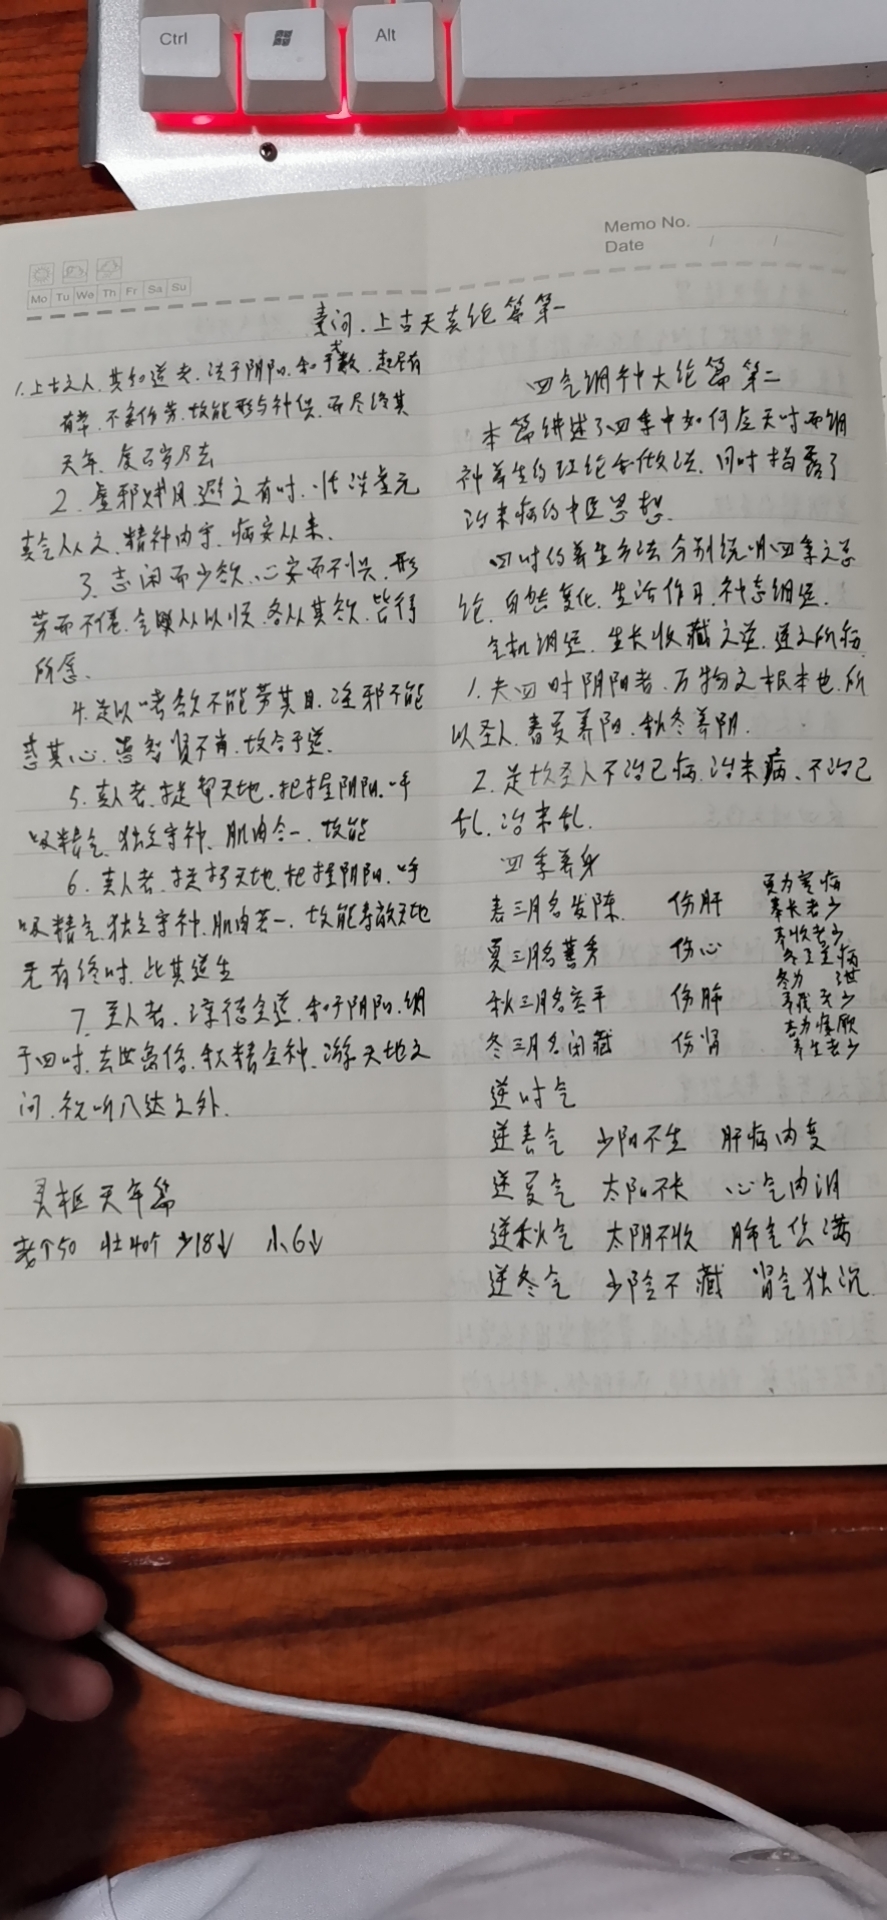 Ctrl
Alt
Memo No.
Date / /
Mo Tu We Th Fr Sa Su
素问.上古天真论篇第一
1.上古之人.其知道者.法于阴阳.和于术数.起居有
有常.不妄作劳.故能形与神俱.而尽终其
天年.度百岁乃去
2.虚邪贼风.避之有时.恬淡虚无
真气从之.精神内守.病安从来.
3.志闲而少欲.心安而不惧.形
劳而不倦.气从以顺.各从其欲.皆得
所愿.
4.是以嗜欲不能劳其目.淫邪不能
惑其心.愚智贤不肖.故合于道.
5.真人者.提挈天地.把握阴阳.呼
吸精气.独立守神.肌肉合一.故能
6.真人者.提挈天地.把握阴阳.呼
吸精气.独立守神.肌肉若一.故能寿敝天地
无有终时.此其道生
7.至人者.淳德全道.和于阴阳.调
于四时.去世离俗.积精全神.游天地之
间.视听八达之外.
灵枢天年篇
老个50 壮40个 少18↓ 小6↓
四气调神大论篇第二
本篇讲述了四季中如何应天时而调
神养生的理论和做法.同时揭露了
治未病的中医思想.
四时的养生方法分别说明四季之总
论.自然变化.生活作习.神志调适.
气机调适.生长收藏之道.逆之所伤
1.夫四时阴阳者.万物之根本也.所
以圣人.春夏养阳.秋冬养阴.
2.是故圣人不治已病.治未病、不治已
乱.治未乱.
四季养身
春三月名发陈. 伤肝 夏为寒病
奉长者少
夏三月名蕃秀 伤心 奉收者少
冬至重病
秋三月名容平 伤肺 冬为 泄
奉藏者少
冬三月名闭藏 伤肾 春为痿厥
奉生者少
逆时气
逆春气 少阳不生 肝病内变
逆夏气 太阳不长 心气内洞
逆秋气 太阴不收 肺气焦满
逆冬气 少阴不藏 肾气独沉